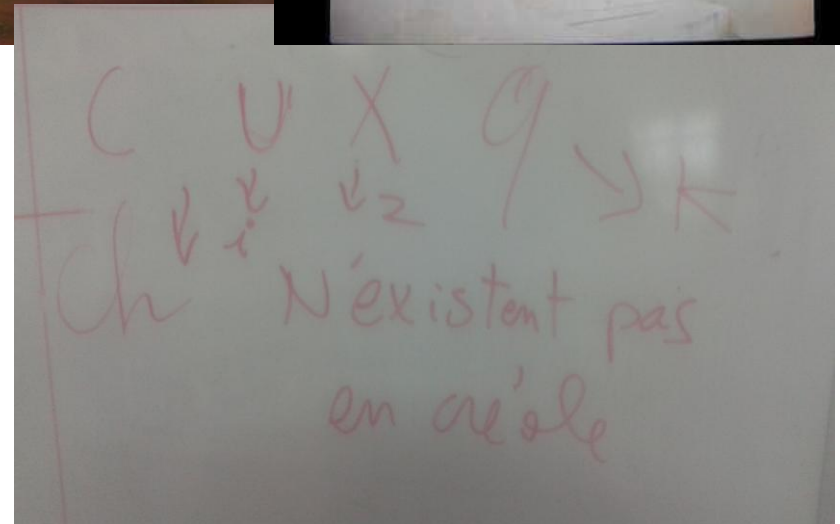 C U X q
↓ ↓ ↓ z ↘ k
Ch i N'éxistent pas
en créole